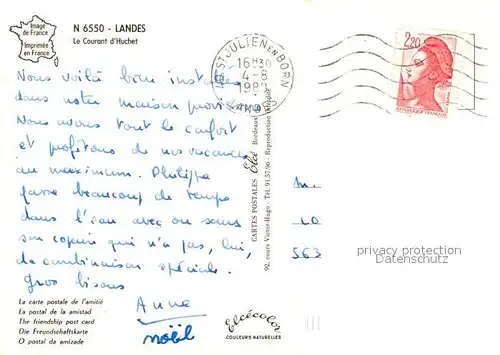 Image
de France
Imprimée
en France
N 6550 - LANDES
Le Courant d'Huchet
ST JULIEN EN BORN
16H30
4-8
LANDES
2,20
REPUBLIQUE FRANÇAISE
Nous voilà bien installés
dans notre maison provisoire
Nous avons tout le confort
et profitons de nos vacances
au maximum. Philippe
passe beaucoup de temps
dans l'eau avec ou sans
son copain qui n'a pas, lui,
de combinaison spéciale.
Gros bisous
Anne
noël
La carte postale de l'amitié
La postal de la amistad
The friendship post card
Die Freundschaftskarte
O postal da amizade
CARTES POSTALES Elcé Bordeaux
92, cours Victor-Hugo - Tél. 91.57.06 - Reproduction interdite
Elcécolor
COULEURS NATURELLES
563
privacy protection
Datenschutz